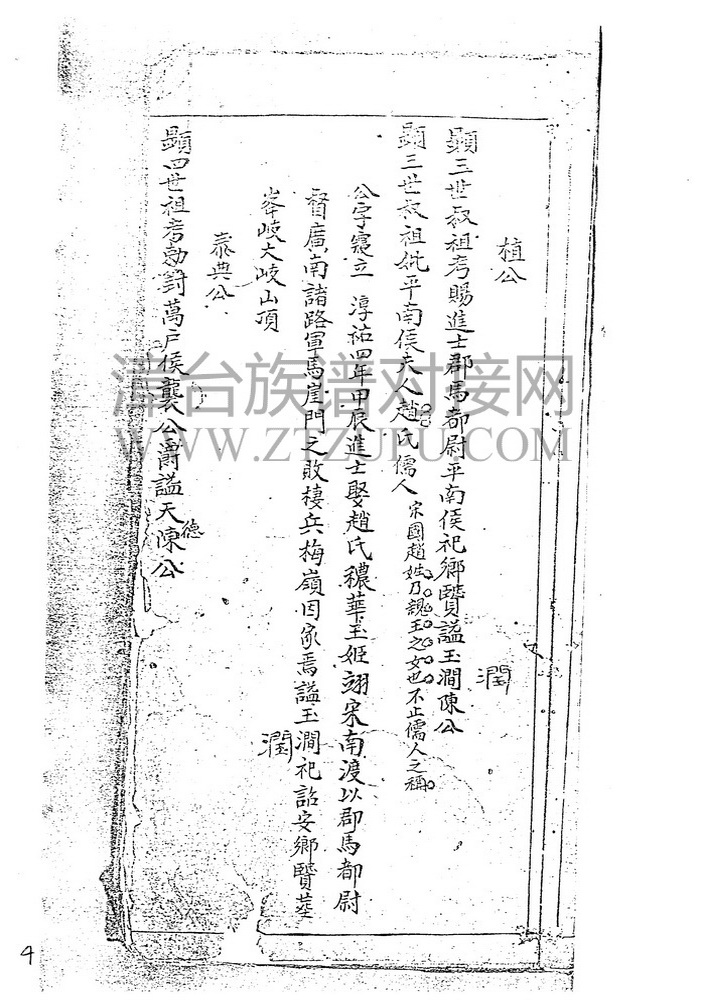 植公
顯三世叔祖考賜進士郡馬都尉平南侯祀鄉賢謚玉澗陳公
潤
顯三世叔祖妣平南侯夫人趙氏儒人
宋國趙姓乃親王之女也不止儒人之稱
公字寔立 淳祐四年甲辰進士娶趙氏穠華玉姬翊宋南渡以郡馬都尉
督廣南諸路軍馬崖門之敗棲兵梅嶺因家焉謚玉澗祀詔安鄉賢葬
潤
峯岐大岐山頂
泰典公
顯四世祖考勅封萬戶侯襲公爵謚天陳公
德
漳台族谱对接网
WWW.ZTZUPU.COM
4